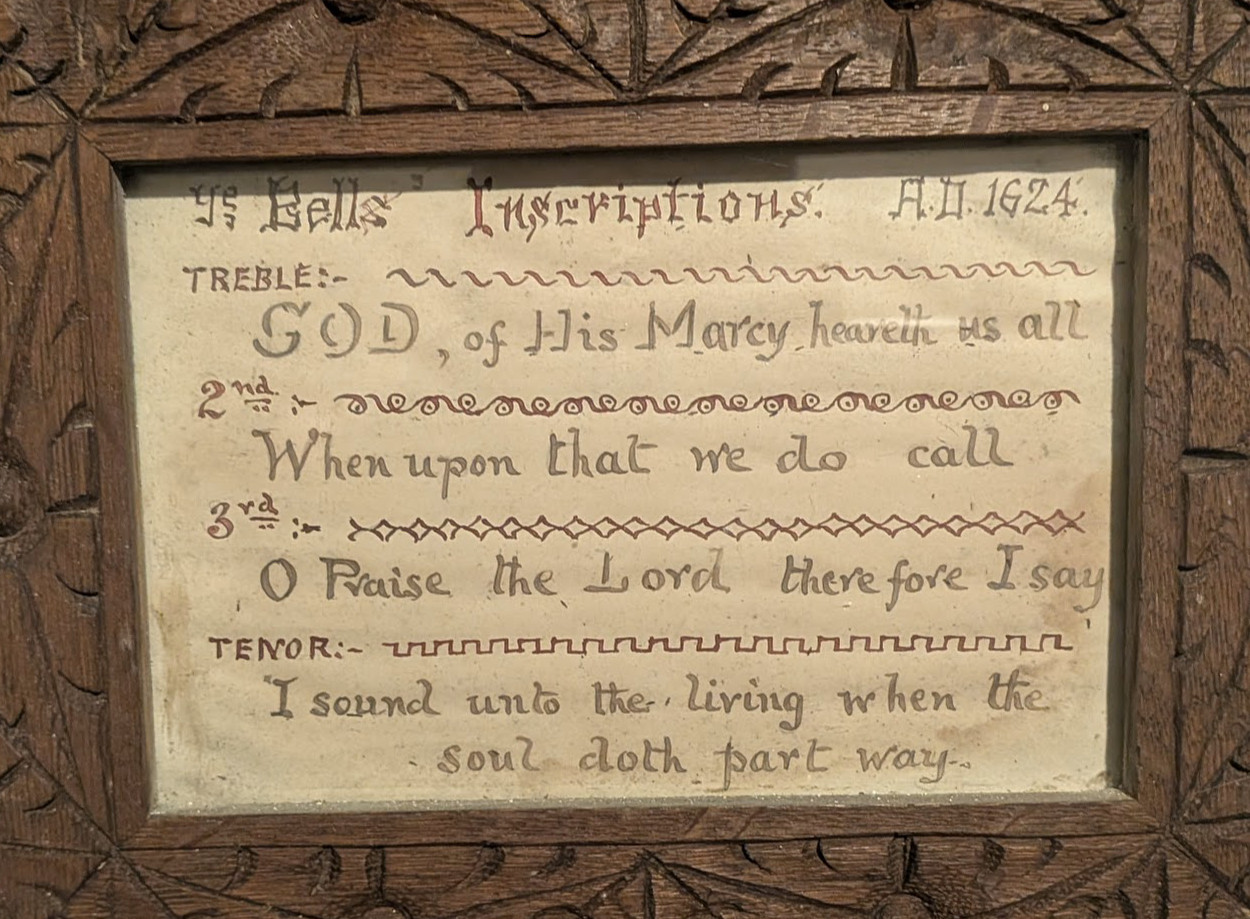 Ye Bells' Inscriptions. A.D. 1624.
TREBLE:-
GOD, of His Marcy heareth us all
2nd:-
When upon that we do call
3rd:-
O Praise the Lord therefore I say
TENOR:-
I sound unto the living when the
soul doth part way.